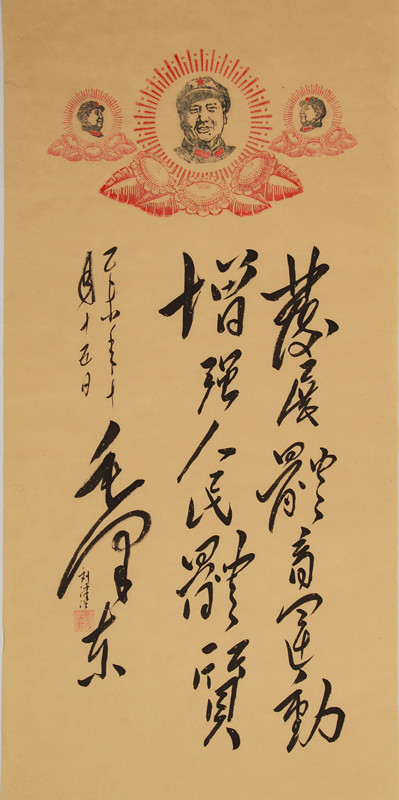 發展體育運動
增强人民體質
乙未年十
月十五日
毛澤东